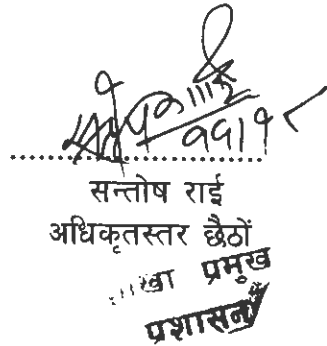 ११।१
सन्तोष राई
अधिकृतस्तर छैठौं
शाखा प्रमुख
प्रशासन